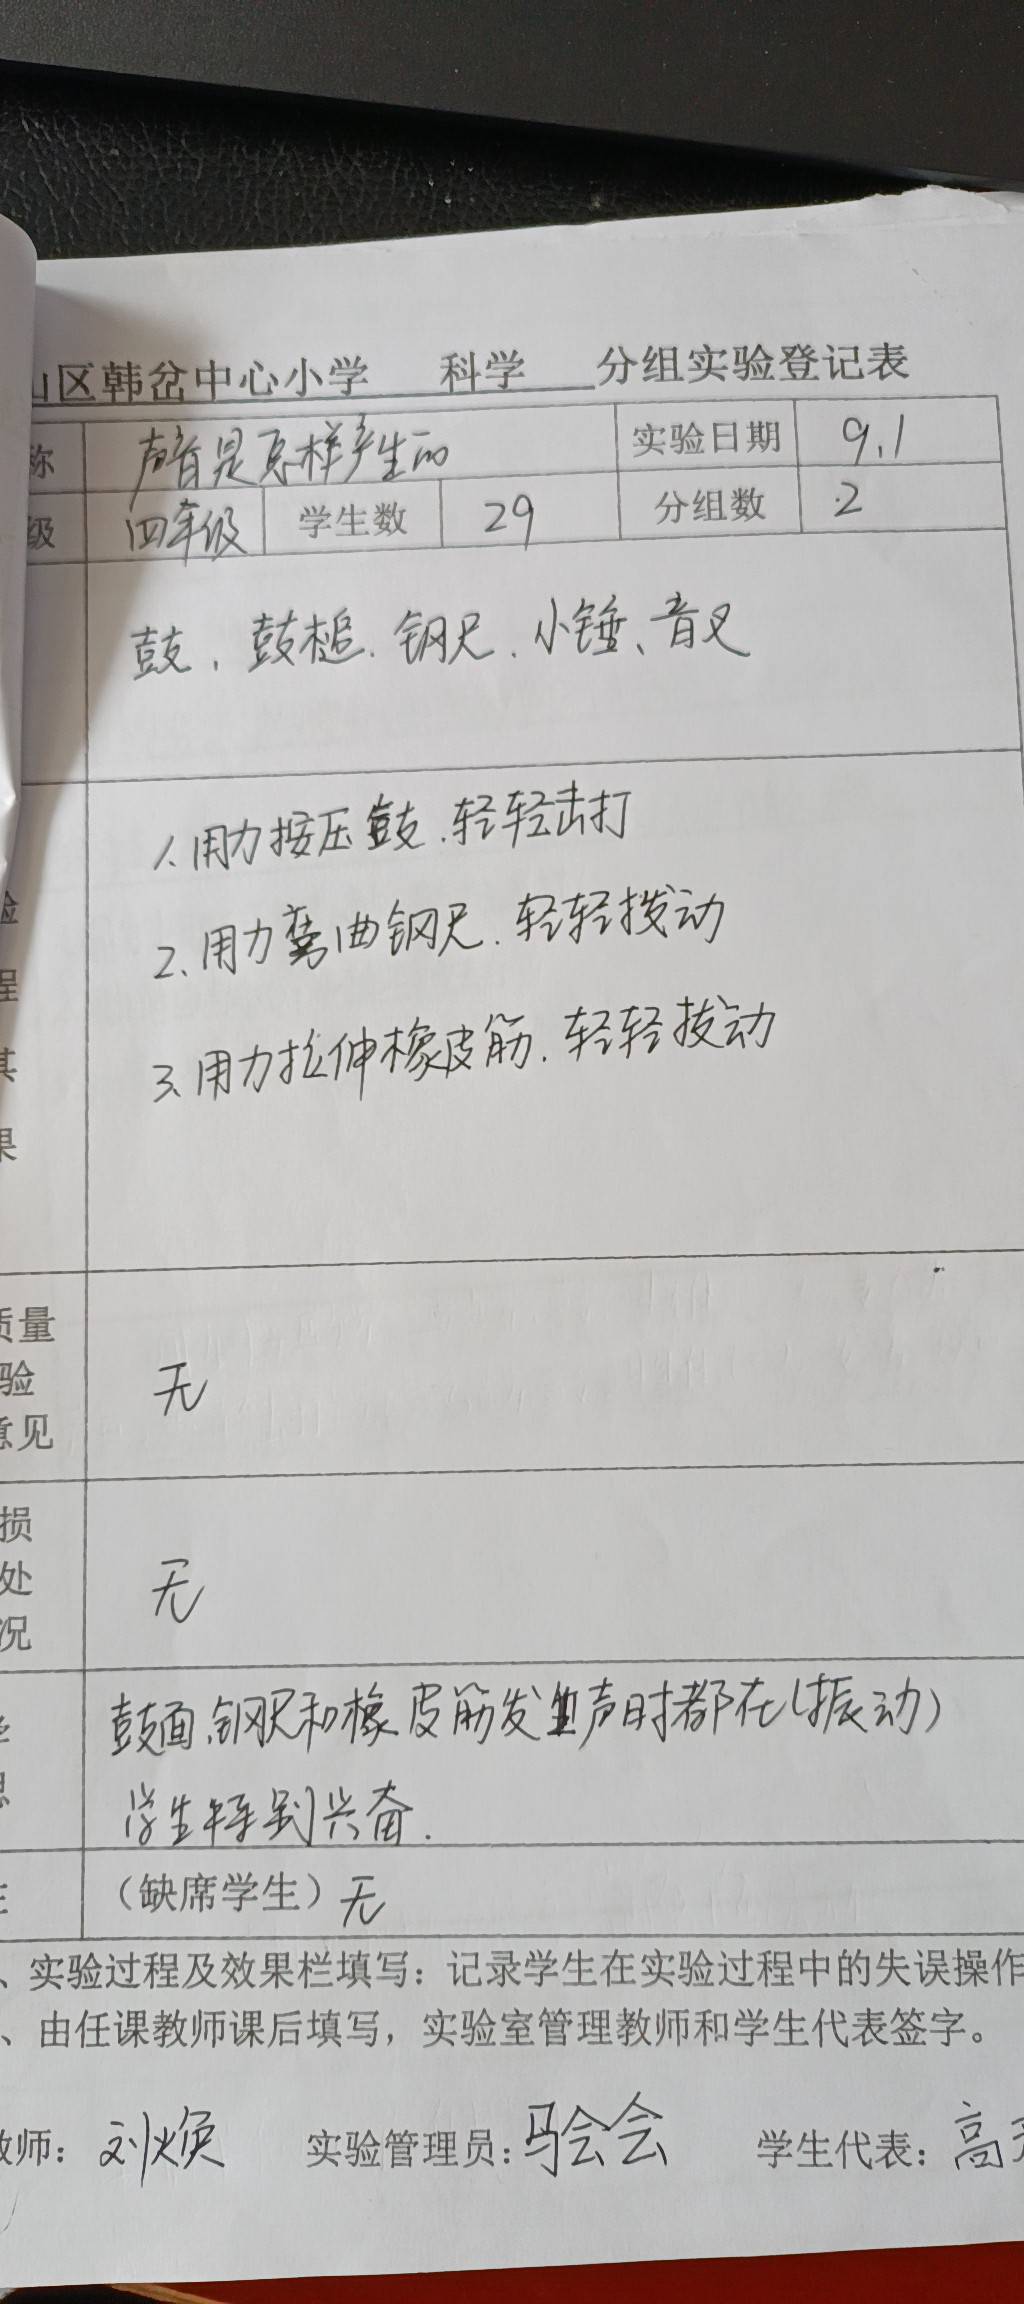 山区韩岔中心小学 科学 分组实验登记表
称 声音是怎样产生的 实验日期 9.1
级 四年级 学生数 29 分组数 2
鼓、鼓槌、钢尺、小锤、音叉
1、用力按压鼓、轻轻击打
2、用力弯曲钢尺、轻轻拨动
3、用力拉伸橡皮筋、轻轻拨动
验
程
其
果
质量
验
意见
无
损
处
况
无
鼓面、钢尺和橡皮筋发出声时都在(振动)
学生特别兴奋.
(缺席学生)无
、实验过程及效果栏填写：记录学生在实验过程中的失误操作
、由任课教师课后填写，实验室管理教师和学生代表签字。
教师：刘焕 实验管理员：马会会 学生代表：高